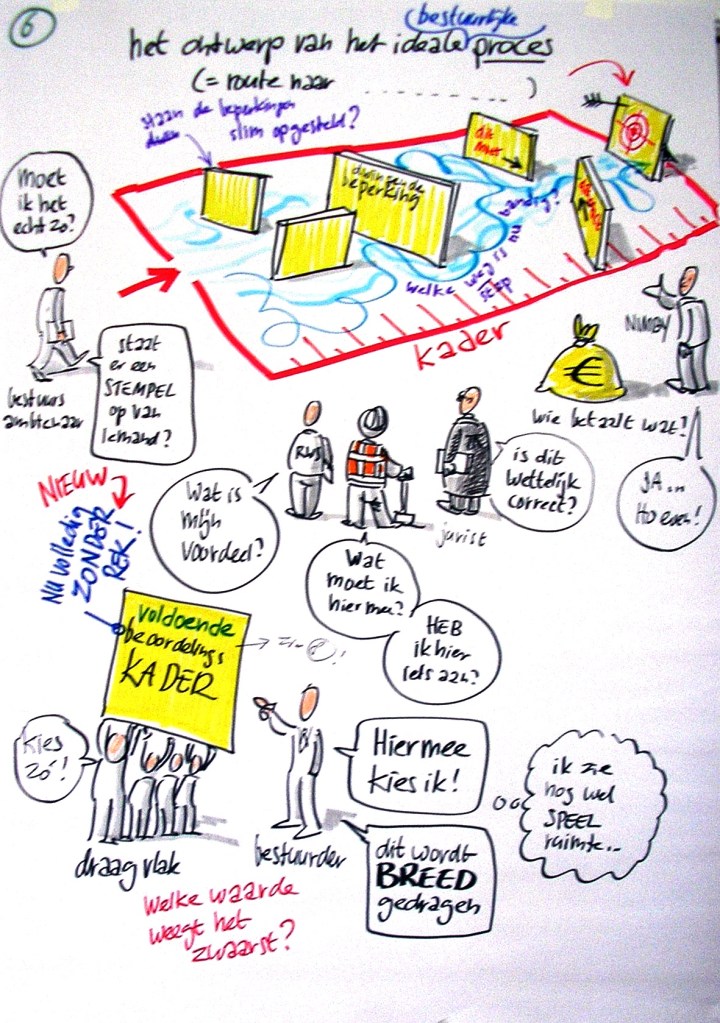 6
bestuurlijke
het ontwerp van het ideale proces
(= route naar - - - - - - - - )
staan de beperkingen
slim opgesteld?
moet
ik het
echt zo?
dwingende
beperking
dit
niet
welke weg is nu
handig?
kader
bestuurs
ambtenaar
staat
er een
STEMPEL
op van
iemand?
NIMBY
€
wie betaalt wat?
JA...
Hoeven!
RWS
Wat is
mijn
voordeel?
Wat
moet ik
hiermee?
HEB
ik hier
iets aan?
jurist
is dit
wettelijk
correct?
NIEUW
NU volledig
ZONDER
REK!
voldoende
beoordelings
KADER
kies
zó!
draagvlak
bestuurder
Hiermee
kies ik!
dit wordt
BREED
gedragen
ik zie
nog wel
SPEEL
ruimte...
Welke waarde
weegt het
zwaarst?